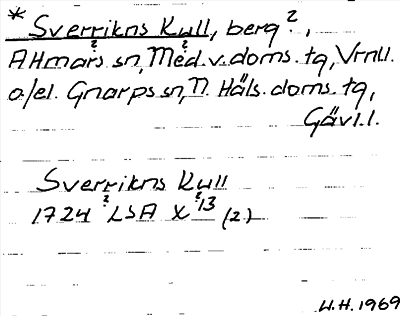 * Sverrikns Kull, berg?,
AHmars sn, Med.v.doms.tg, Vrnl.l.
o/el. Gnarps sn, N. Häls. doms. tg,
Gävl.l.
Sverrikns Kull
1724 LSA X 13 (2)
H.H. 1969